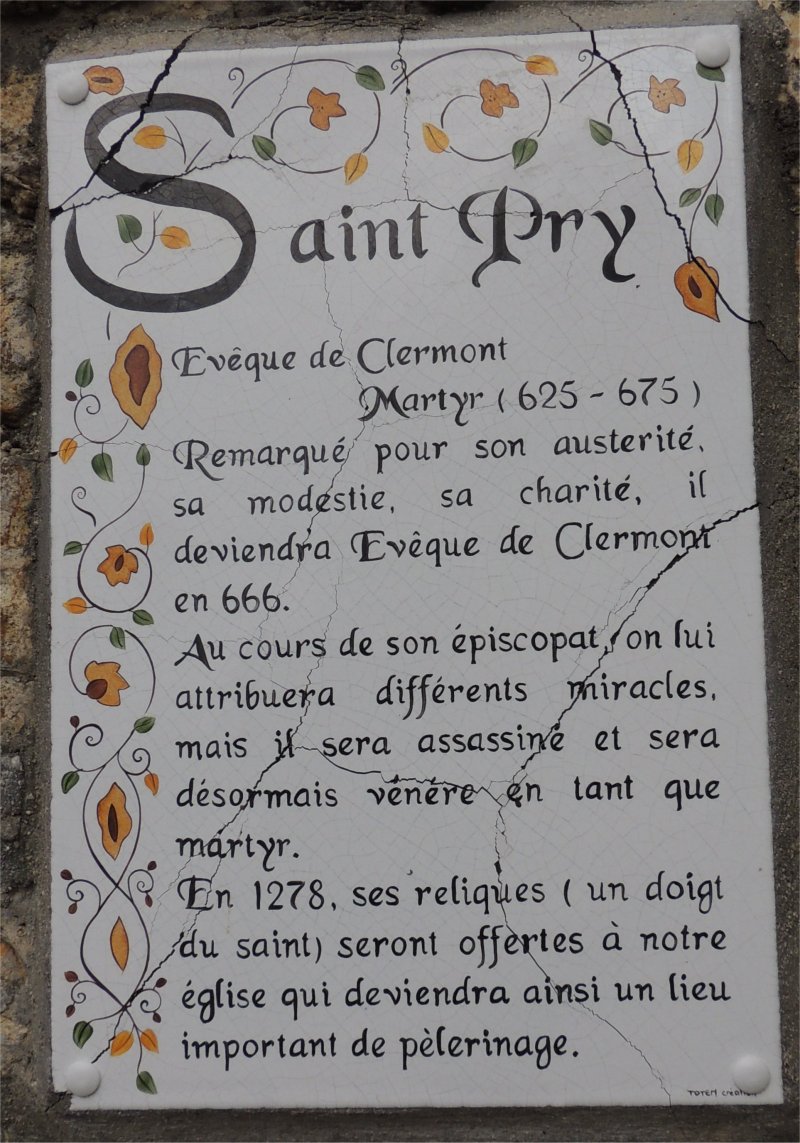 Saint Pry
Evêque de Clermont
Martyr ( 625 - 675 )
Remarqué pour son austerité,
sa modestie, sa charité, il
deviendra Evêque de Clermont
en 666.
Au cours de son épiscopat, on lui
attribuera différents miracles,
mais il sera assassiné et sera
désormais vénére en tant que
martyr.
En 1278, ses reliques ( un doigt
du saint) seront offertes à notre
église qui deviendra ainsi un lieu
important de pèlerinage.
TOTEM création